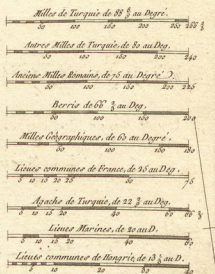 Milles de Turquie de 88 8/9 au Degré.
60 100 150 200 266 2/3
Autres Milles de Turquie, de 80 au Deg.
60 100 150 200 240
Anciens Milles Romains, de 75 au Degré D.
50 100 150 200 225
Berris de 66 2/3 au Deg.
50 100 150 200
Milles Géographiques, de 60 au Degré.
60 100 180
Lieues communes de France, de 25 au Deg.
5 10 15 20 25 50 75
Agachs de Turquie, de 22 2/9 au Deg.
5 10 15 20 40 60 66 2/3
Lieues Marines, de 20 au D.
5 10 15 20 40 60
Lieues communes de Hongrie, de 13 1/3 au D.
5 10 20 30 40